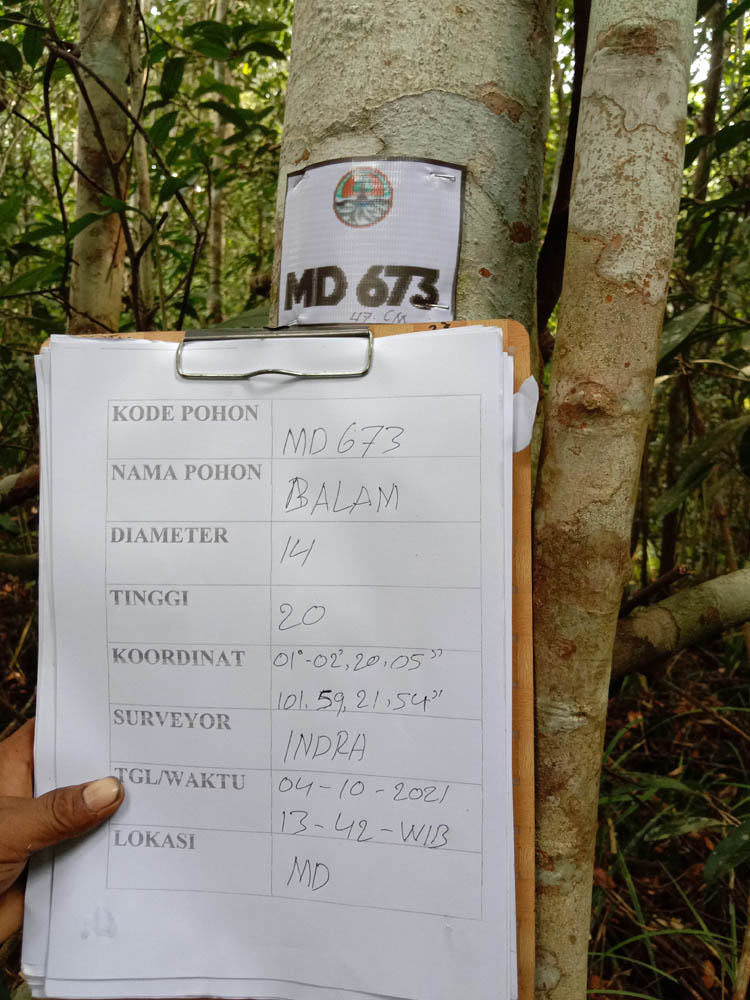 MD 673
47. CM
KODE POHON MD 673
NAMA POHON BALAM
DIAMETER 14
TINGGI 20
KOORDINAT 01°-02', 20, 05"
101. 59, 21, 54"
SURVEYOR INDRA
TGL/WAKTU 04-10-2021
13-42-WIB
LOKASI MD